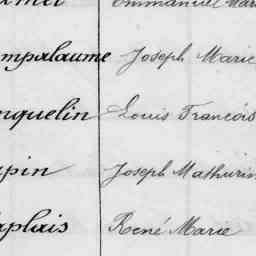 Emmanuel Mari
mpalaume Joseph Marie
nquelin Louis François
pin Joseph Mathurin
plais René Marie